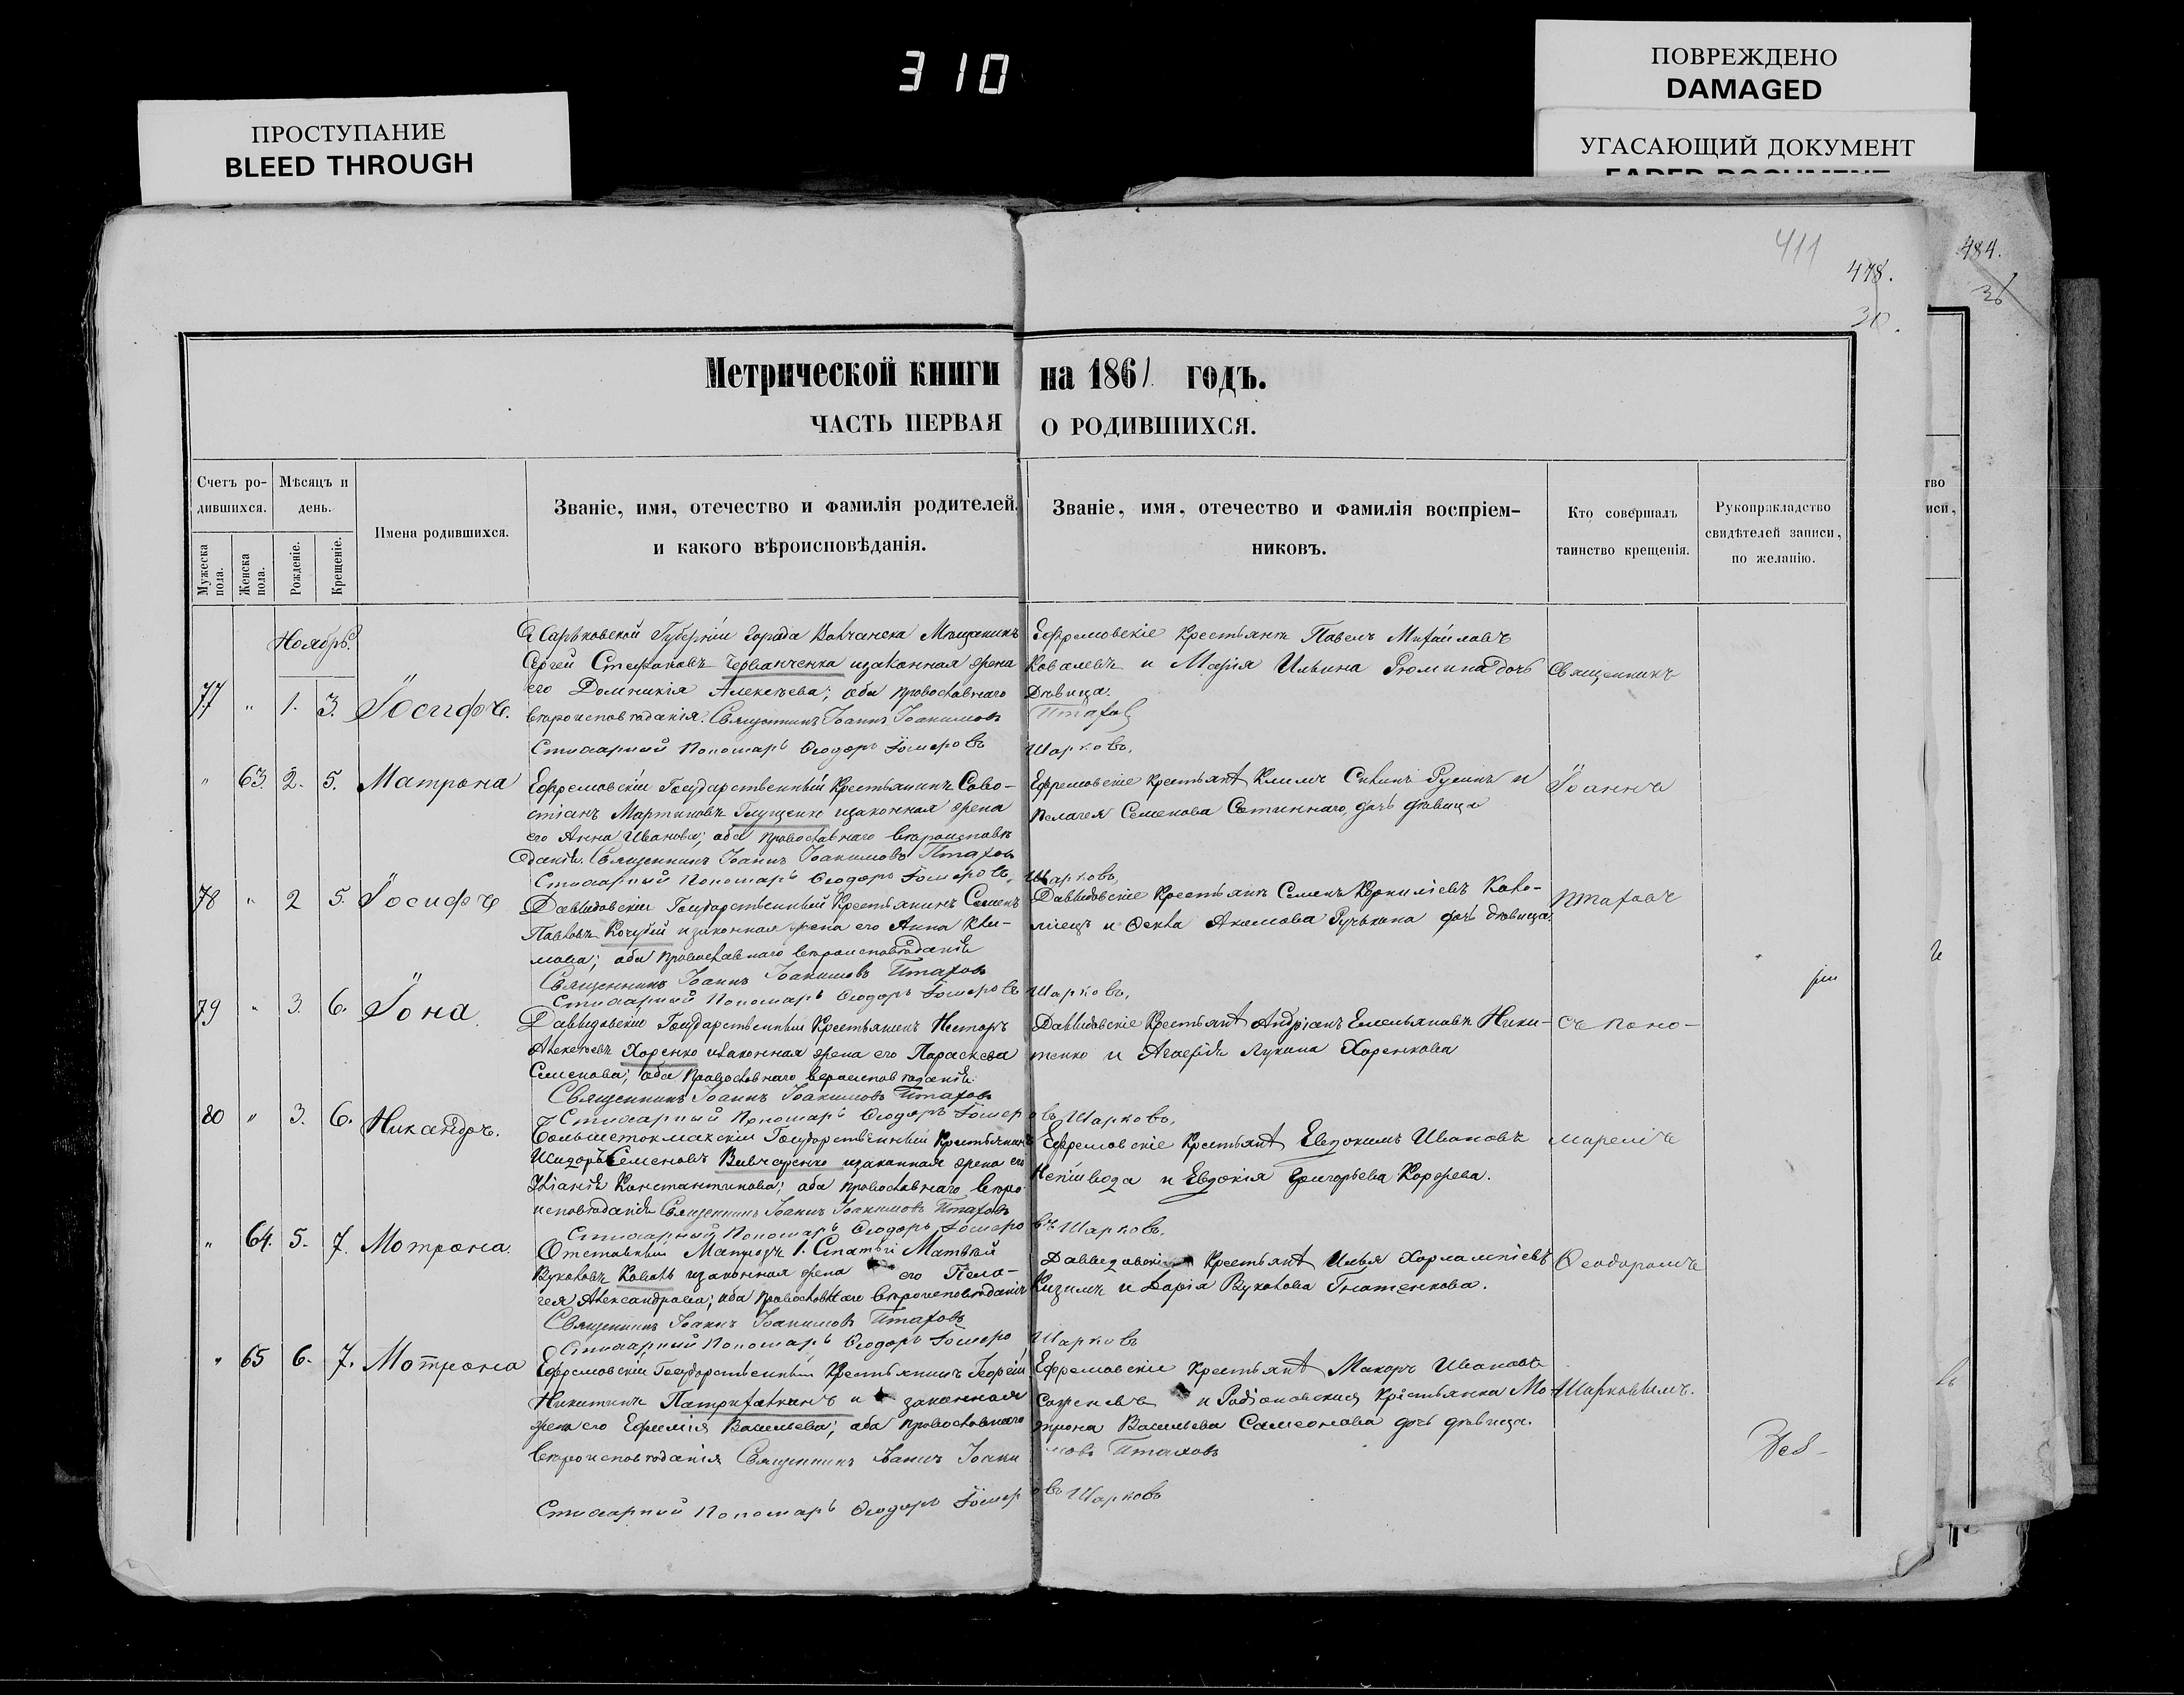 310
ПРОСТУПАНИЕ
BLEED THROUGH
ПОВРЕЖДЕНО
DAMAGED
УГАСАЮЩИЙ ДОКУМЕНТ
411
478.
484.
Метрической книги на 1861 годъ.
ЧАСТЬ ПЕРВАЯ О РОДИВШИХСЯ.
Счетъ ро-
дившихся.
Мужеска пола.
Женска пола.
Мѣсяцъ и
день.
Рожденіе.
Крещеніе.
Имена родившихся.
Званіе, имя, отечество и фамилія родителей,
и какого вѣроисповѣданія.
Званіе, имя, отечество и фамилія воспріем-
никовъ.
Кто совершалъ
таинство крещенія.
Рукоприкладство
свидѣтелей записи,
по желанію.
Ноябрь.
77 " 1. 3. Іосифъ.
Харьковской Губерніи города Волчанска Мѣщанинъ
Сергей Стефановъ Черванченка и законная жена
его Домникія Алексѣева; оба православнаго
вѣроисповѣданія. Священникъ Іоаннъ Іоакимовъ Птаховъ
Стихарный Пономарь Ѳеодоръ Гомеровъ Шарковъ.
Ефремовскіе Крестьяне Павелъ Михайловъ
Ковалевъ и Марія Ильина Рюмина дочь
Дѣвица.
Священникъ
" 63. 2. 5. Матрона
Ефремовскій Государственный Крестьянинъ Саво-
стіанъ Мартиновъ Глущенко и законная жена
его Анна Иванова; оба православнаго вѣроисповѣ
данія. Священникъ Іоаннъ Іоакимовъ Птаховъ
Стихарный Пономарь Ѳеодоръ Гомеровъ Шарковъ
Ефремовскіе крестьяне Климъ Русинъ и
Пелагея Семенова Сотниннаго дочь дѣвица
Іоаннъ
78 " 2 5. Іосифъ
Давыдовскій Государственный Крестьянинъ Семенъ
Павловъ Кочубей и законная жена его Анна Кли-
мова; оба православнаго вѣроисповѣданія
Священникъ Іоаннъ Іоакимовъ Птаховъ
Стихарный Пономарь Ѳеодоръ Гомеровъ Шарковъ.
Давыдовскіе Крестьяне Семенъ Корниліевъ Коло-
міецъ и Ѳекла Акимова дочь дѣвица.
Птаховъ
79 " 3. 6. Іона
Давыдовскій Государственный Крестьянинъ Несторъ
Алексѣевъ Харенко и законная жена его Параскева
Семенова; оба Православнаго вероисповѣданія.
Священникъ Іоаннъ Іоакимовъ Птаховъ
Стихарный Пономарь Ѳеодоръ Гомеровъ Шарковъ.
Давыдовскіе Крестьяне Андріанъ Емельяновъ Ники-
тенко и Агафія Лукина Харенкова
съ поно-
80 " 3. 6. Никандръ.
Большетокмакскій Государственный Крестьянинъ
Исидоръ Семеновъ Вивчаренко и законная жена его
Уліанія Константинова; оба православнаго вѣро
исповѣданія Священникъ Іоаннъ Іоакимовъ Птаховъ
Стихарный Пономарь Ѳеодоръ Гомеровъ Шарковъ.
Ефремовскіе Крестьяне Евдокимъ Ивановъ
Непійвода и Евдокія Григорьева Коржева.
маремъ
" 64. 5. 7. Мотрона.
Отставный Матрозъ 1. Статьи Матвѣй
Вуколовъ Коваль и законная жена его Пела-
гея Александрова; оба православнаго вѣроисповѣданія
Священникъ Іоаннъ Іоакимовъ Птаховъ
Стихарный Пономарь Ѳеодоръ Гомеро Шарковъ
Давыдовскіе Крестьяне Илья Харлампіевъ
Кизимъ и Дарія Вуколова Гнатенкова.
Ѳеодоромъ
" 65 6. 7. Мотрона
Ефремовскій Государственный Крестьянинъ Георгій
Никитинъ Патрихалкинъ и законная
жена его Ефимія Васильева; оба православнаго
вѣроисповѣданія Священникъ Іоаннъ Іоакимовъ Птаховъ
Стихарный Пономарь Ѳеодоръ Гомеровъ Шарковъ
Ефремовскіе Крестьяне Макаръ Ивановъ
и Родіоновская крестьянка Мо-
трона Васильева Самсонова дочь дѣвица.
Шарковымъ.